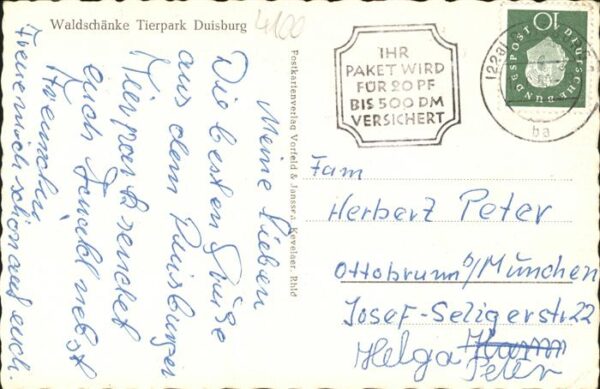 Waldschänke Tierpark Duisburg
4100
Meine Lieben
Die besten Grüße
aus dem Duisburger
Tierpark sendet
euch Traudl nebst
Freuen mich schon auf euch.
Postkartenverlag Vorfeld & Janssen, Kevelaer, Rhld
IHR
PAKET WIRD
FÜR 20 PF
BIS 500 DM
VERSICHERT
(22a)
ba
10
DEUTSCHE BUNDESPOST
Fam
Herbert Peter
Ottobrunn b/München
Josef-Seligerstr 22
Helga
Peter